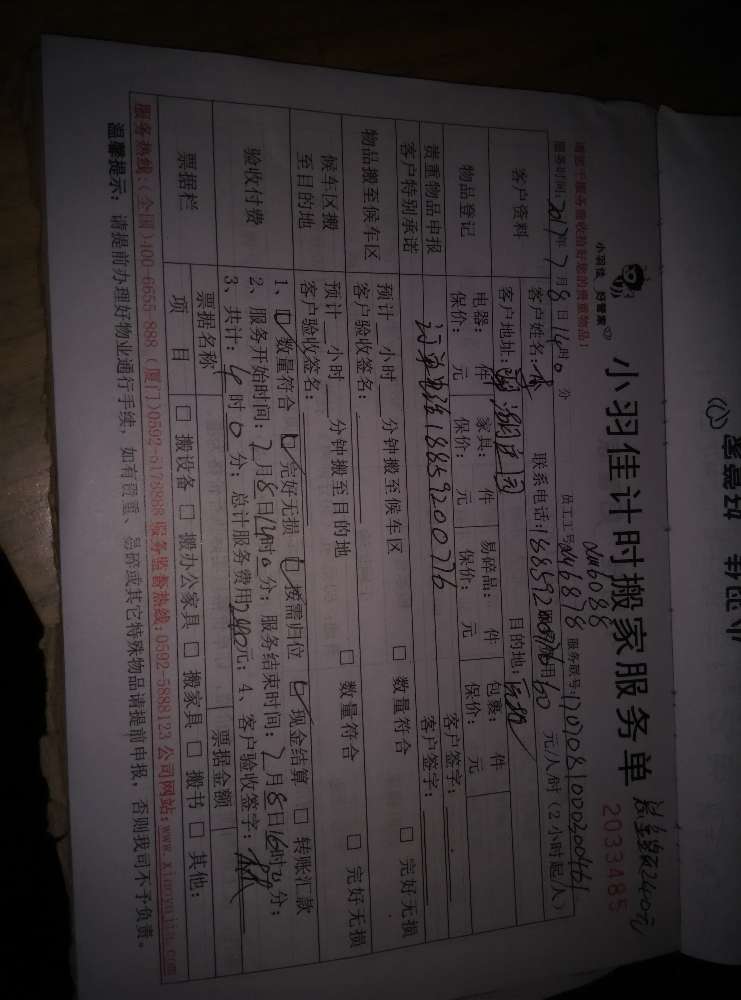 小羽佳 好管家
小羽佳计时搬家服务单
总金额240元
2033485
请您于服务前收拾好您的贵重物品!
服务时间:2017年7月8日14时0分 员工工号 服务联号:
客户资料
客户姓名: 联系电话:18859200776 费用60元/人/时(2小时起/人)
客户地址: 目的地:
物品登记
电器: 件 家具: 件 易碎品: 件 包裹: 件
保价: 元 保价: 元 保价: 元 保价: 元
客户签字:
贵重物品申报
客户特别承诺
订单电话18859200776
客户签字:
物品搬至候车区
预计 小时 分钟搬至候车区 □ 数量符合 □ 完好无损
客户验收签名:
候车区搬
至目的地
预计 小时 分钟搬至目的地 □ 数量符合 □ 完好无损
客户验收签名:
验收付费
1、□ 数量符合 □ 完好无损 □ 按需归位 □ 现金结算 □ 转账汇款
2、服务开始时间:7月8日14时0分; 服务结束时间:7月8日16时 分;
3、共计:4时0分; 总计服务费用240元; 4、客户验收签字:
票据栏
票据名称 票据金额
项目 □ 搬设备 □ 搬办公家具 □ 搬家具 □ 搬书 □ 其他:
服务热线:(全国)400-6655-888 (厦门)0592-5178888 服务监督热线:0592-5888123 公司网站:www.xiaoyujia.com
温馨提示: 请提前办理好物业通行手续, 如有贵重、易碎或其它特殊物品请提前申报, 否则我司不予负责。